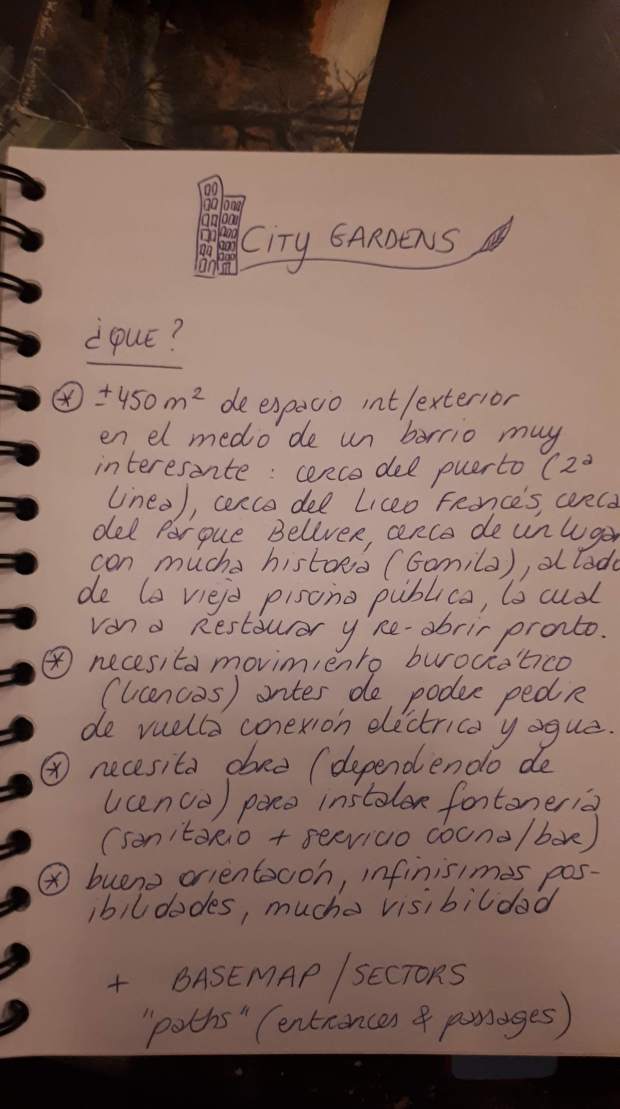 CITY GARDENS
¿QUE?
* ±450m² de espacio int/exterior
en el medio de un barrio muy
interesante: cerca del puerto (2ª
linea), cerca del Liceo Francés, cerca
del Parque Bellver, cerca de un lugar
con mucha historia (Gomila), al lado
de la vieja piscina pública, la cual
van a restaurar y re-abrir pronto.
* necesita movimiento burocrático
(licencias) antes de poder pedir
de vuelta conexión eléctrica y agua.
* necesita obra (dependiendo de
licencia) para instalar fontanería
(sanitario + servicio cocina/bar)
* buena orientación, infinisimas pos-
ibilidades, mucha visibilidad
+ BASEMAP / SECTORS
"paths" (entrances & passages)